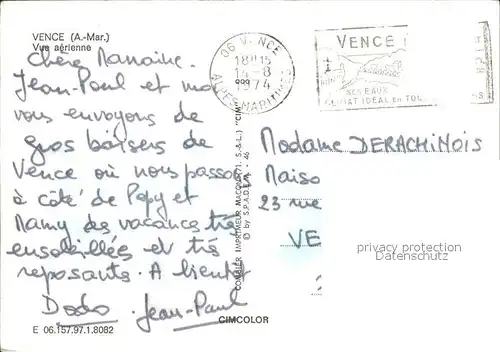 VENCE (A.-Mar.)
Vue aérienne
Chère Marraine.
Jean-Paul et moi
vous envoyons de
Gros baisers de
Vence où nous passons
à côté de Papy et
Mamy des vacances très
ensoleillées et très
reposantes. A bientôt
Dodo . Jean-Paul
E 06.157.97.1.8082
COMBIER IMPRIMEUR MACON (71. S.-&-L.) "CIM"
© by S.P.A.D.E.M. - 46
CIMCOLOR
06 VENCE
18H15
14-8
1974
ALPES MARITIMES
VENCE
SES EAUX
CLIMAT IDÉAL EN TOU
Madame DERACHINOIS
Maiso
23 rue
VE
privacy protection
Datenschutz